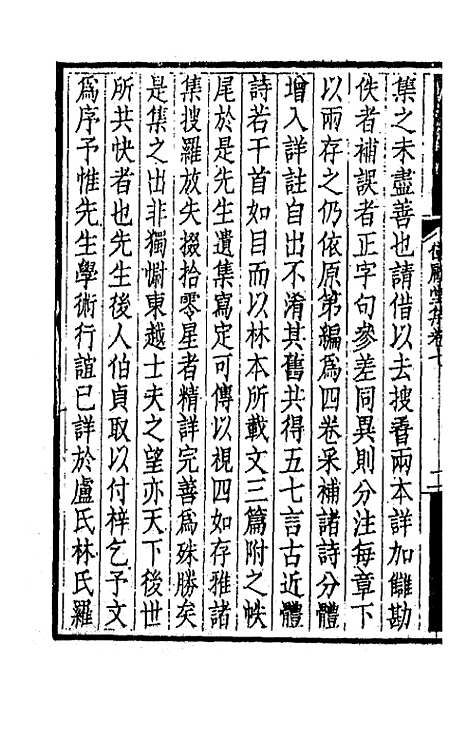 集之未盡善也請借以去搜香兩本詳加讎勘
佚者補誤者正字句參差同異則分注每章下
以兩存之仍依原第編爲四卷采補諸詩分體
增入詳註自出不淆其舊共得五七言古近體
詩若干首如目而以林本所載文三篇附之帙
尾於是先生遺集寫定可傳以視四如存雅諸
集搜羅放失掇拾零星者精詳完善爲殊勝矣
是集之出非獨慰東越士夫之望亦天下後世
所共快者也先生後人伯貞取以付梓乞予文
爲序予惟先生學術行誼已詳於盧氏林氏羅
堂集卷七